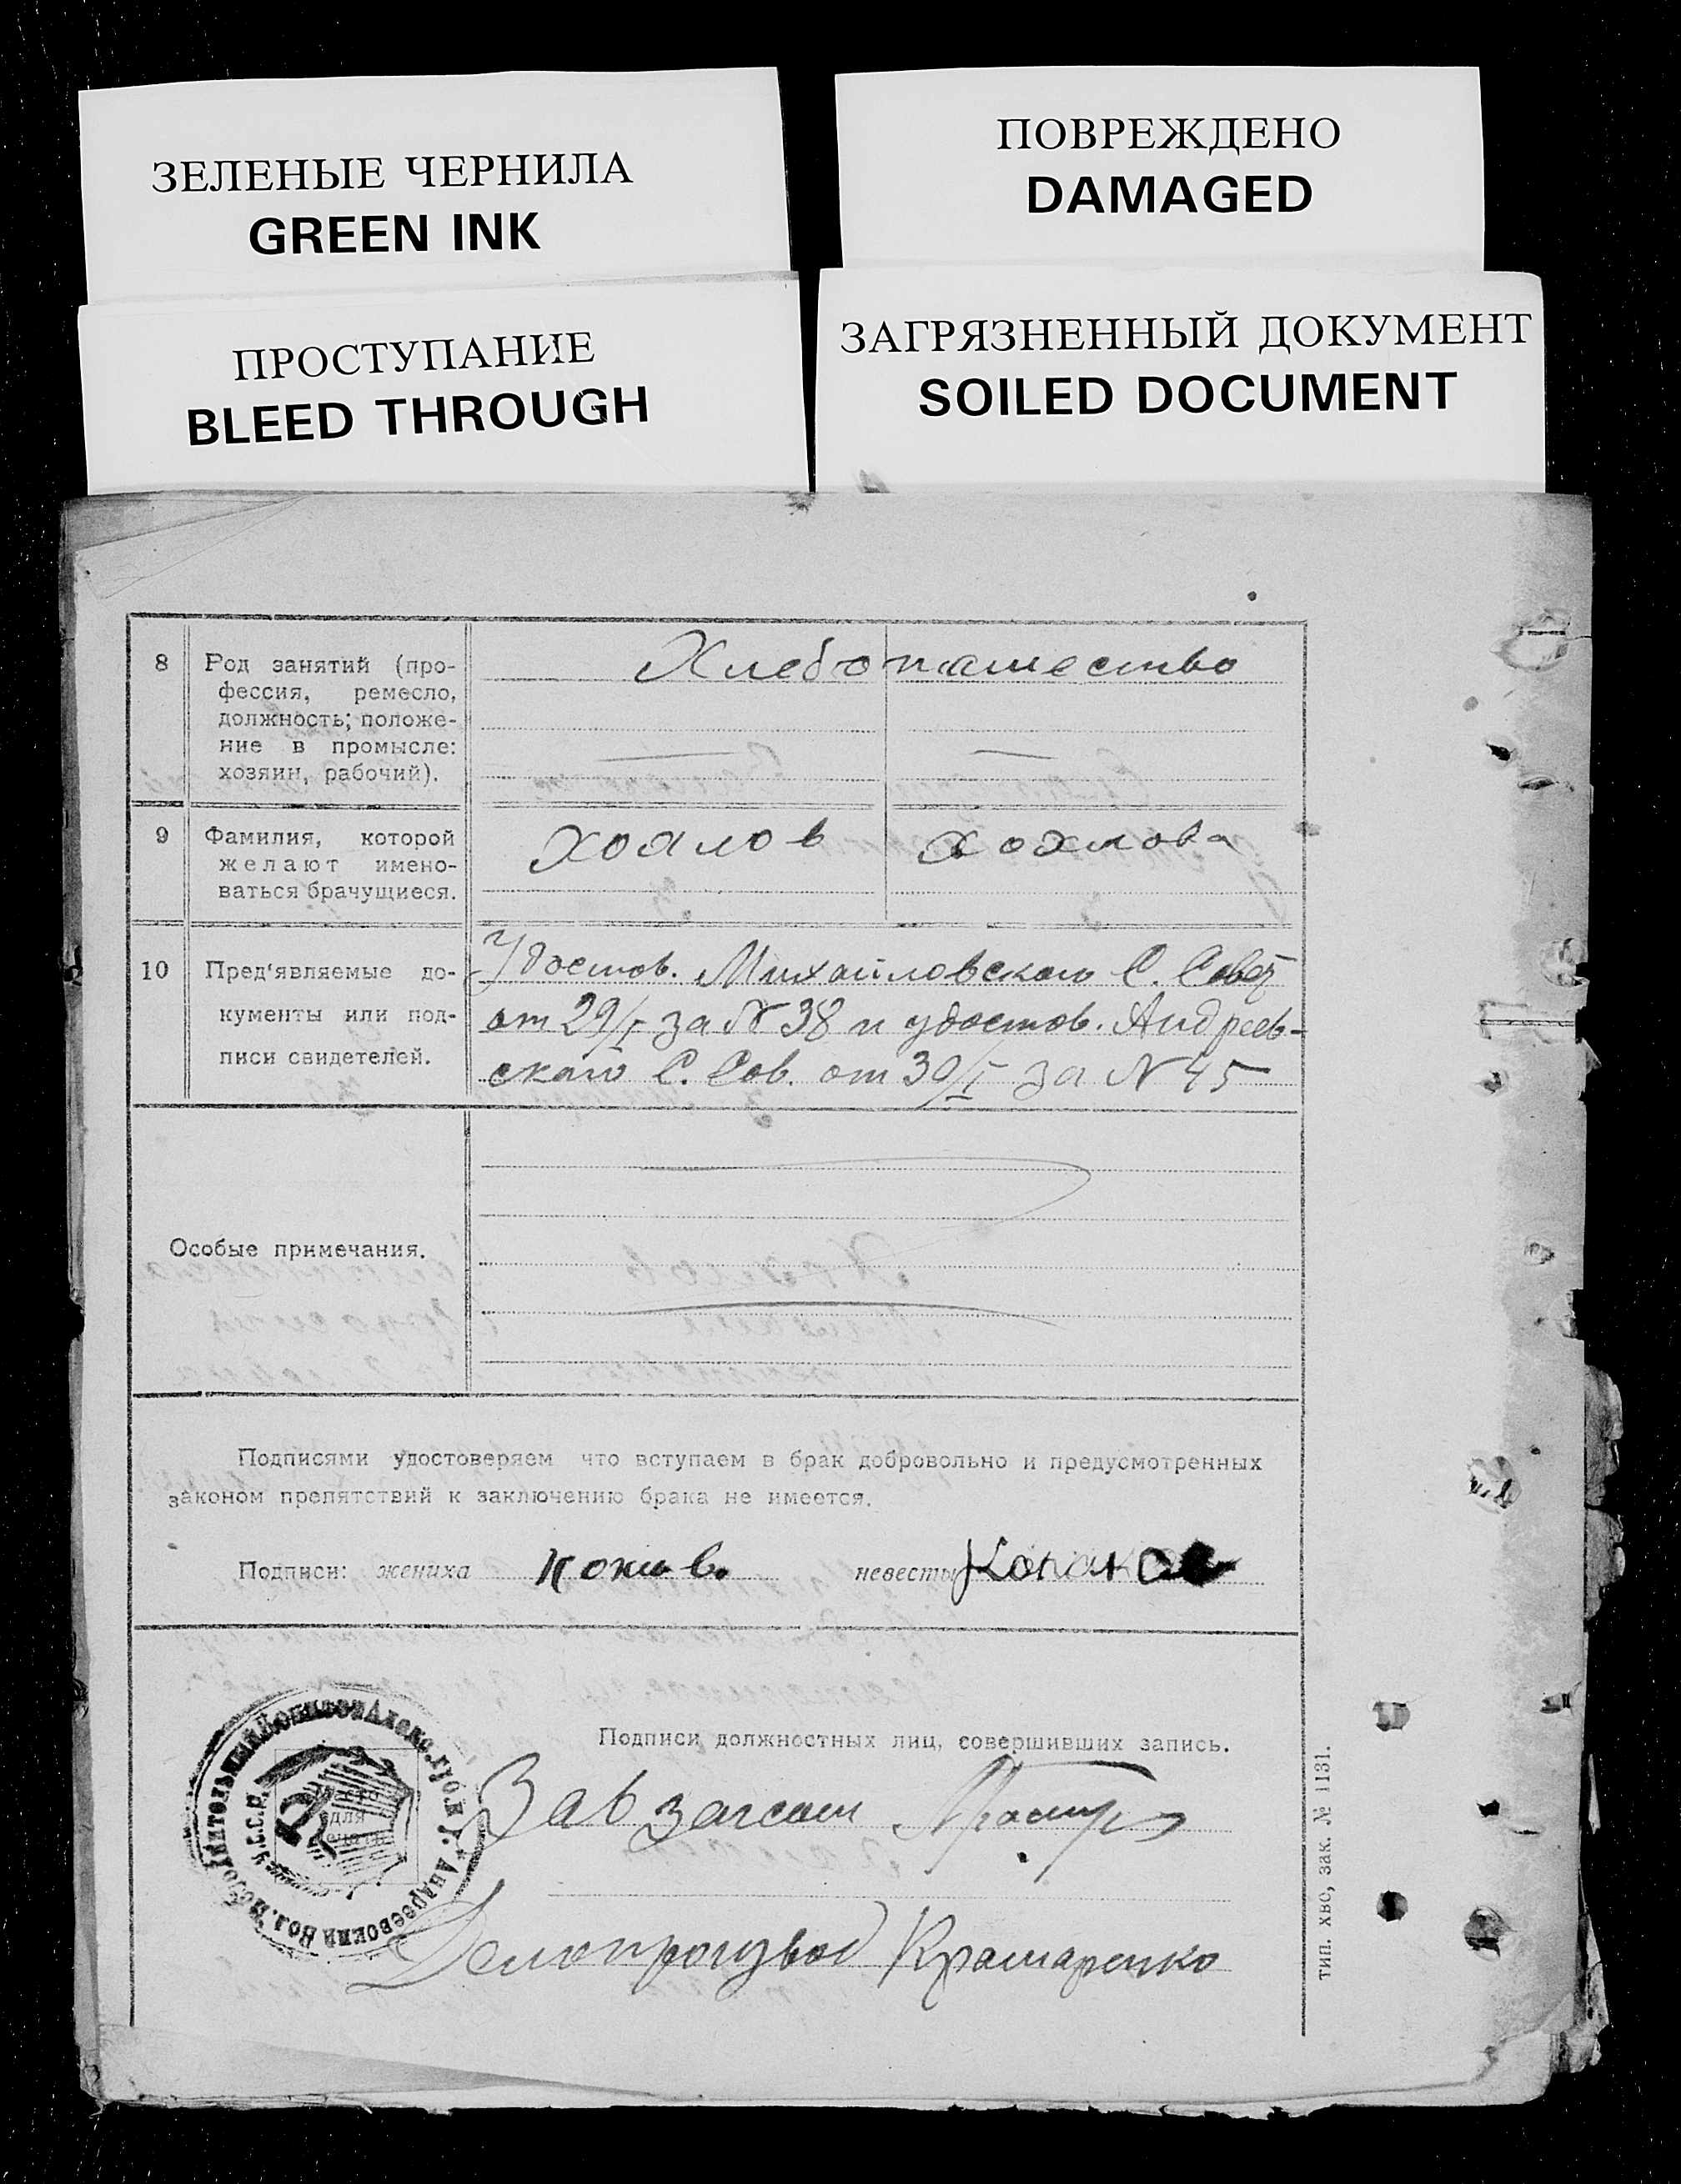 ЗЕЛЕНЫЕ ЧЕРНИЛА
GREEN INK
ПОВРЕЖДЕНО
DAMAGED
ПРОСТУПАНИЕ
BLEED THROUGH
ЗАГРЯЗНЕННЫЙ ДОКУМЕНТ
SOILED DOCUMENT
8 Род занятий (про-
фессия, ремесло,
должность; положе-
ние в промысле:
хозяин, рабочий).
Хлебопашество
9 Фамилия, которой
желают имено-
ваться брачущиеся.
Хохлов Хохлова
10 Пред'являемые до-
кументы или под-
писи свидетелей.
Удостов. Михайловского С. Совет
от 29/I за № 38 и удостов. Андреев-
ского С. Сов. от 30/I за № 45
Особые примечания.
Подписями удостоверяем что вступаем в брак добровольно и предусмотренных
законом препятствий к заключению брака не имеется.
Подписи: жениха
невесты
Подписи должностных лиц, совершивших запись.
Зав загсом
Делопроизвод Крамаренко
У.С.С.Р.
для
Андреевский Вол.
тип. хво, зак. № 1131.